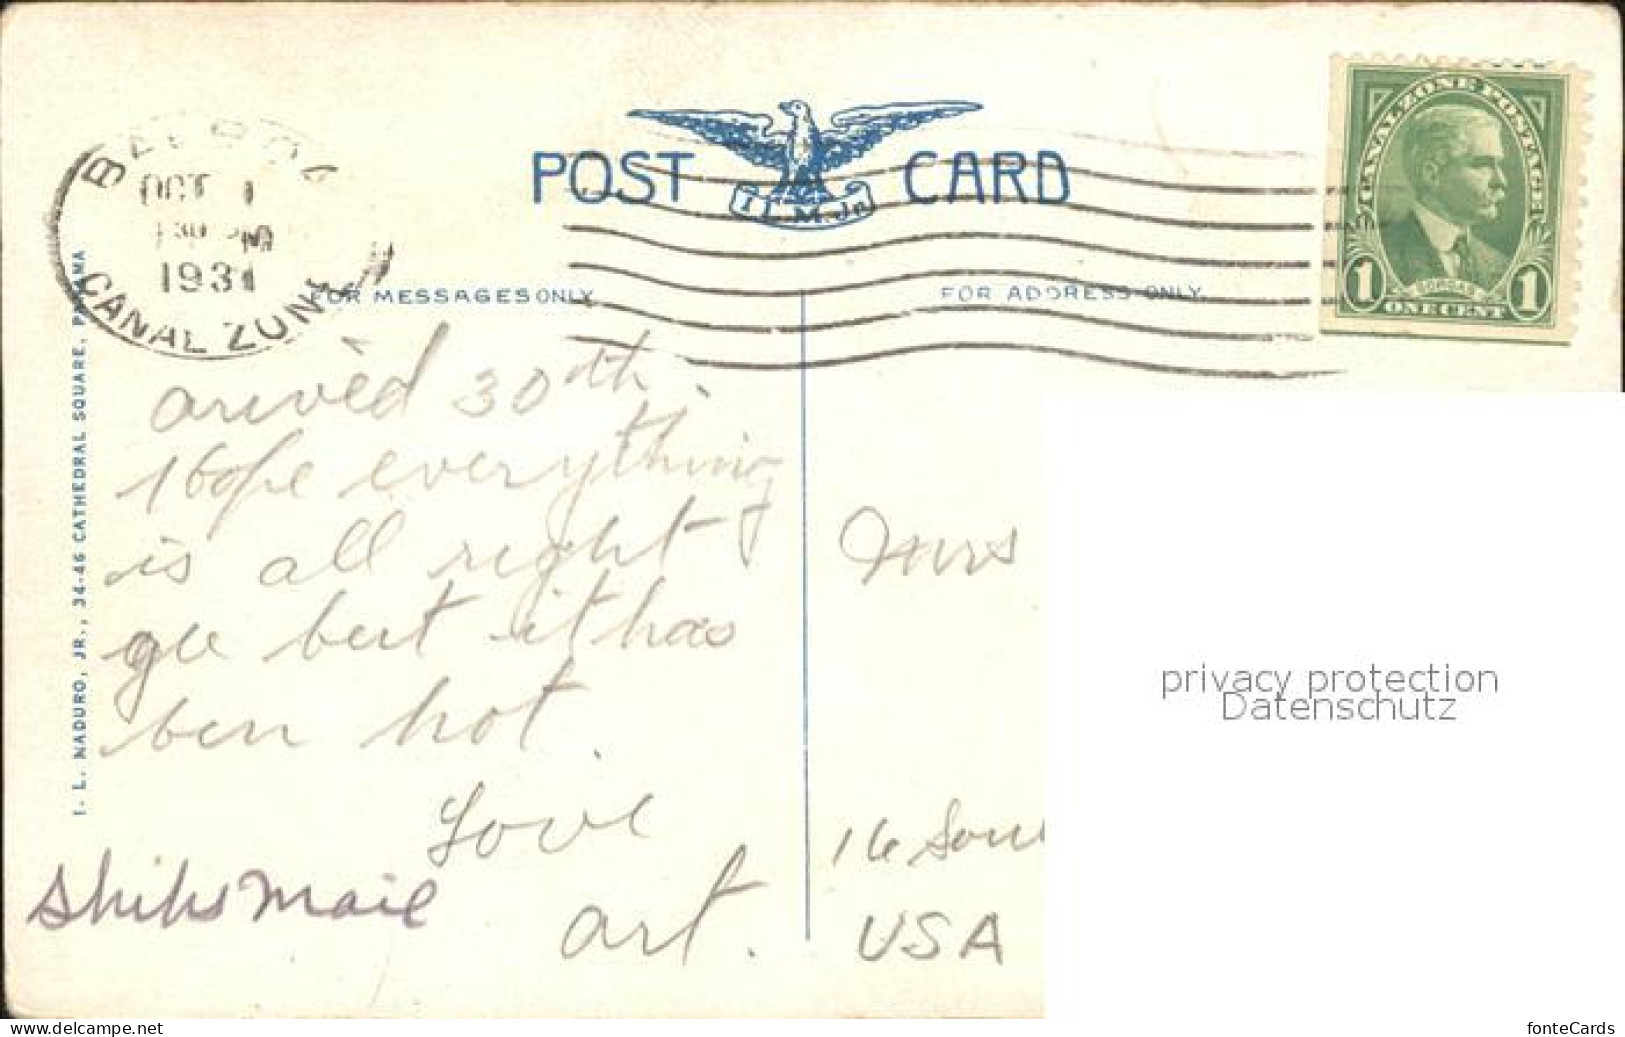 BALBOA
OCT 1
1 30 PM
1931
CANAL ZONE
POST CARD
I.L.M.Jr.
CANAL ZONE POSTAGE
1 GORGAS 1
ONE CENT
FOR MESSAGES ONLY
FOR ADDRESS ONLY
I. L. NADURO, JR., 34-46 CATHEDRAL SQUARE, PANAMA
arived 30th.
I hope everything
is all right
but it has
ben hot.
Love
art.
Ships Mail
Mrs
16 Sou
USA
privacy protection
Datenschutz
www.delcampe.net
fonteCards